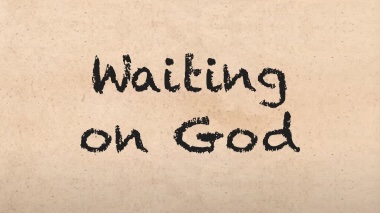 Waiting
on God